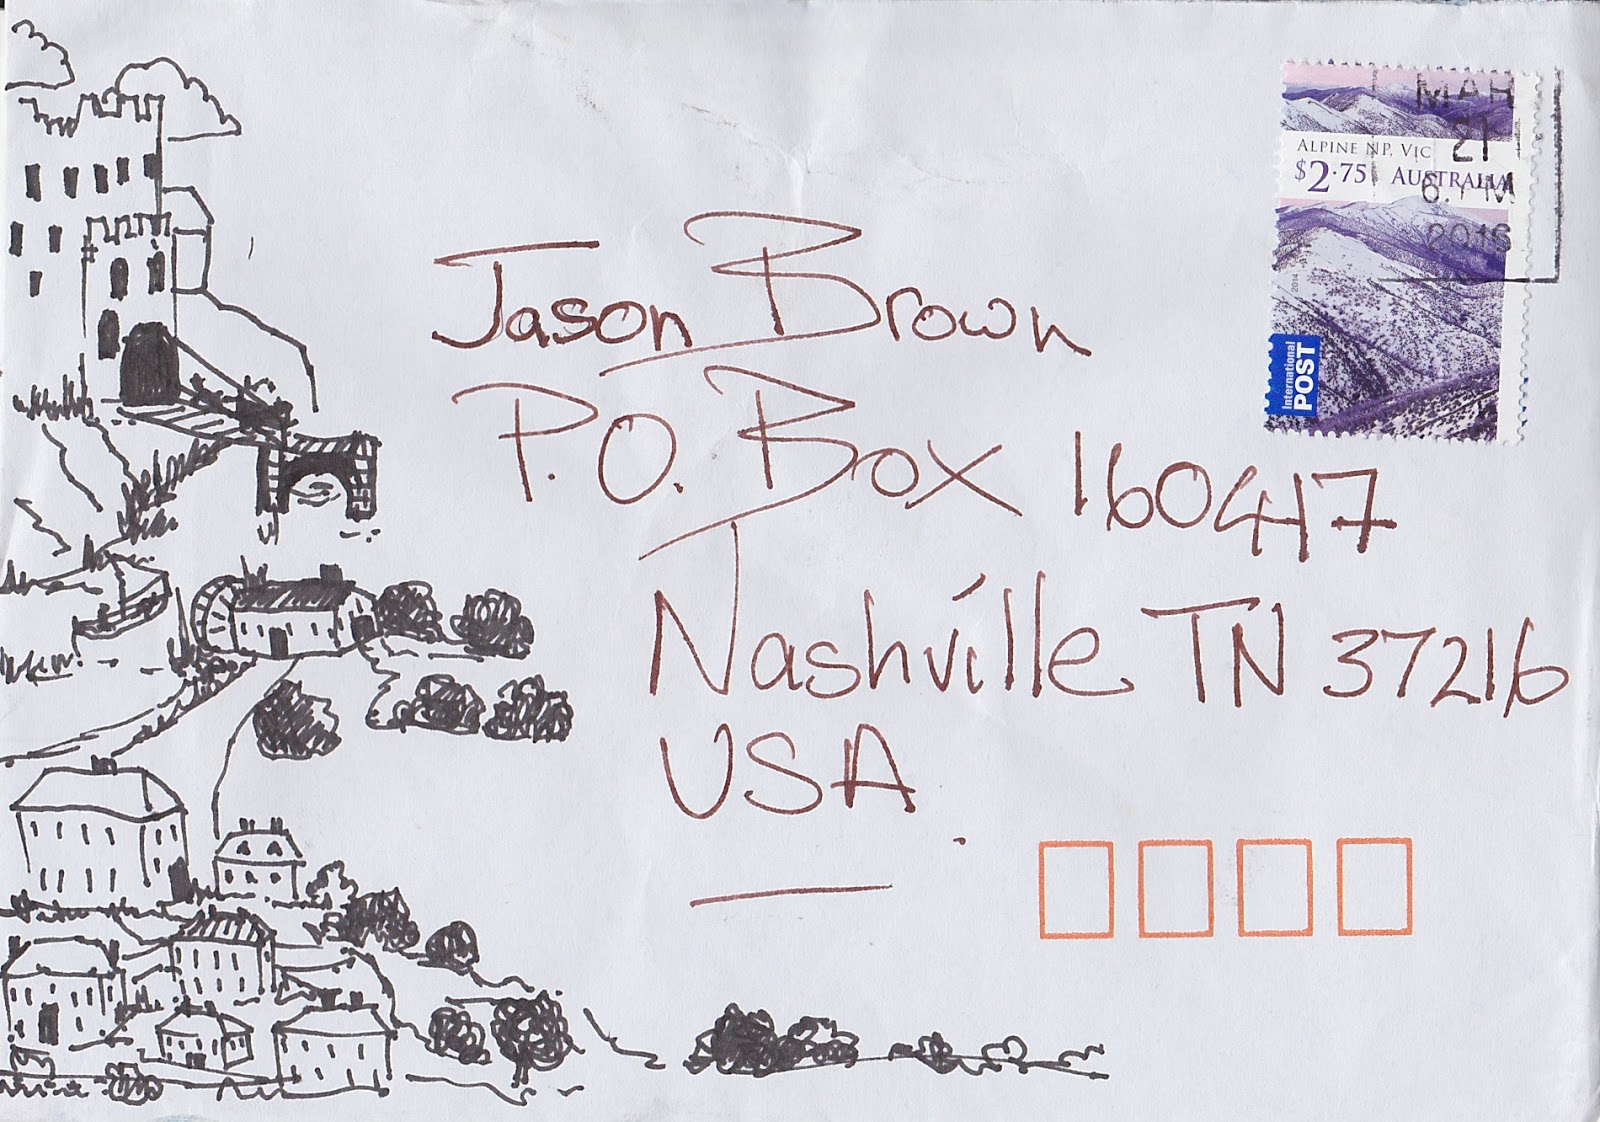 MAR
21
6.PM
2016
ALPINE NP, VIC
$2.75 AUSTRALIA
2014
International
POST
Jason Brown
P.O. Box 160417
Nashville TN 37216
USA.